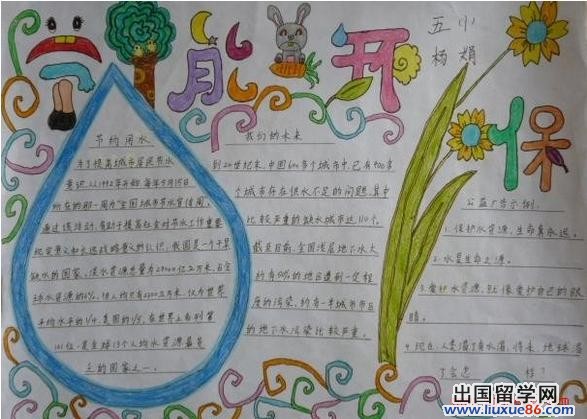 节能环保
五小
杨娟
节约用水
为了提高城市居民节水
意识,从1992年开始,每年5月15日
所在的那一周为"全国城市节水宣传周。
通过该活动,有助于提高社会对节水工作重要
现实意义和长远战略意义的认识,我国是一个干旱
缺水的国家,淡水资源总量为28000亿立方米,占全
球水资源的6%,但人均只有2200立方米,仅为世界
平均水平的1/4,美国的1/5,在世界上名列第
121位,是全球13个人均水资源最贫
乏的国家之一。
我们的未来
到20世纪末,中国600多个城市中,已有400多
个城市存在供水不足的问题,其中
比较严重的缺水城市达110个。
截至目前,全国浅层地下水大
约有50%的地区遭到一定程
度的污染,约有一半城市市区
的地下水污染比较严重。
公益广告示例:
1.保护水资源,生命真永远。
2.水是生命之源。
3.爱护水资源,就像爱护自己的眼
睛。
4.现在,人类渴了有水喝,将来,地球渴
了会怎 样?
出国留学网
www.liuxue86.com